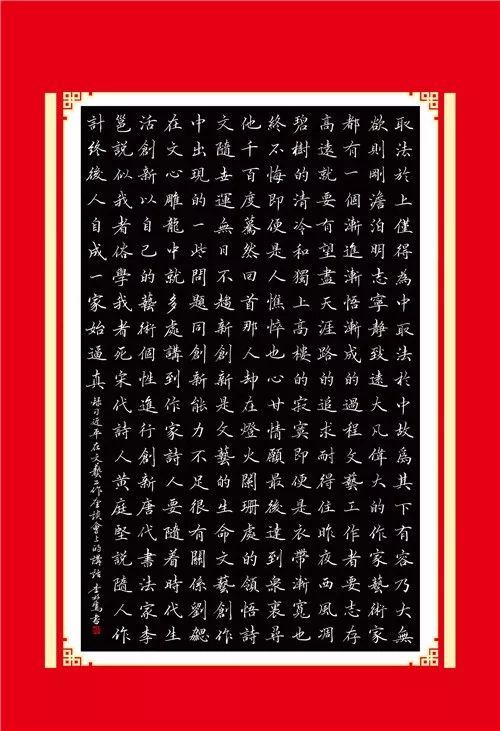 取法於上僅得為中取法於中故為其下有容乃大無
欲則剛澹泊明志寧靜致遠大凡偉大的作家藝術家
都有一個漸進漸悟漸成的過程文藝工作者要志存
高遠就要有望盡天涯路的追求耐得住昨夜西風凋
碧樹的清冷和獨上高樓的寂寞即便是衣帶漸寬也
終不悔即便是人憔悴也心甘情願最後達到衆裏尋
他千百度驀然回首那人却在燈火闌珊處的領悟詩
文隨世運無日不趨新創新是文藝的生命文藝創作
中出現的一些問題同創新能力不足很有關係劉勰
在文心雕龍中就多處講到作家詩人要隨着時代生
活創新以自己的藝術個性進行創新唐代書法家李
邕說似我者俗學我者死宋代詩人黃庭堅說隨人作
計終後人自成一家始逼真
錄習近平在文藝工作座談會上的講話 李 書